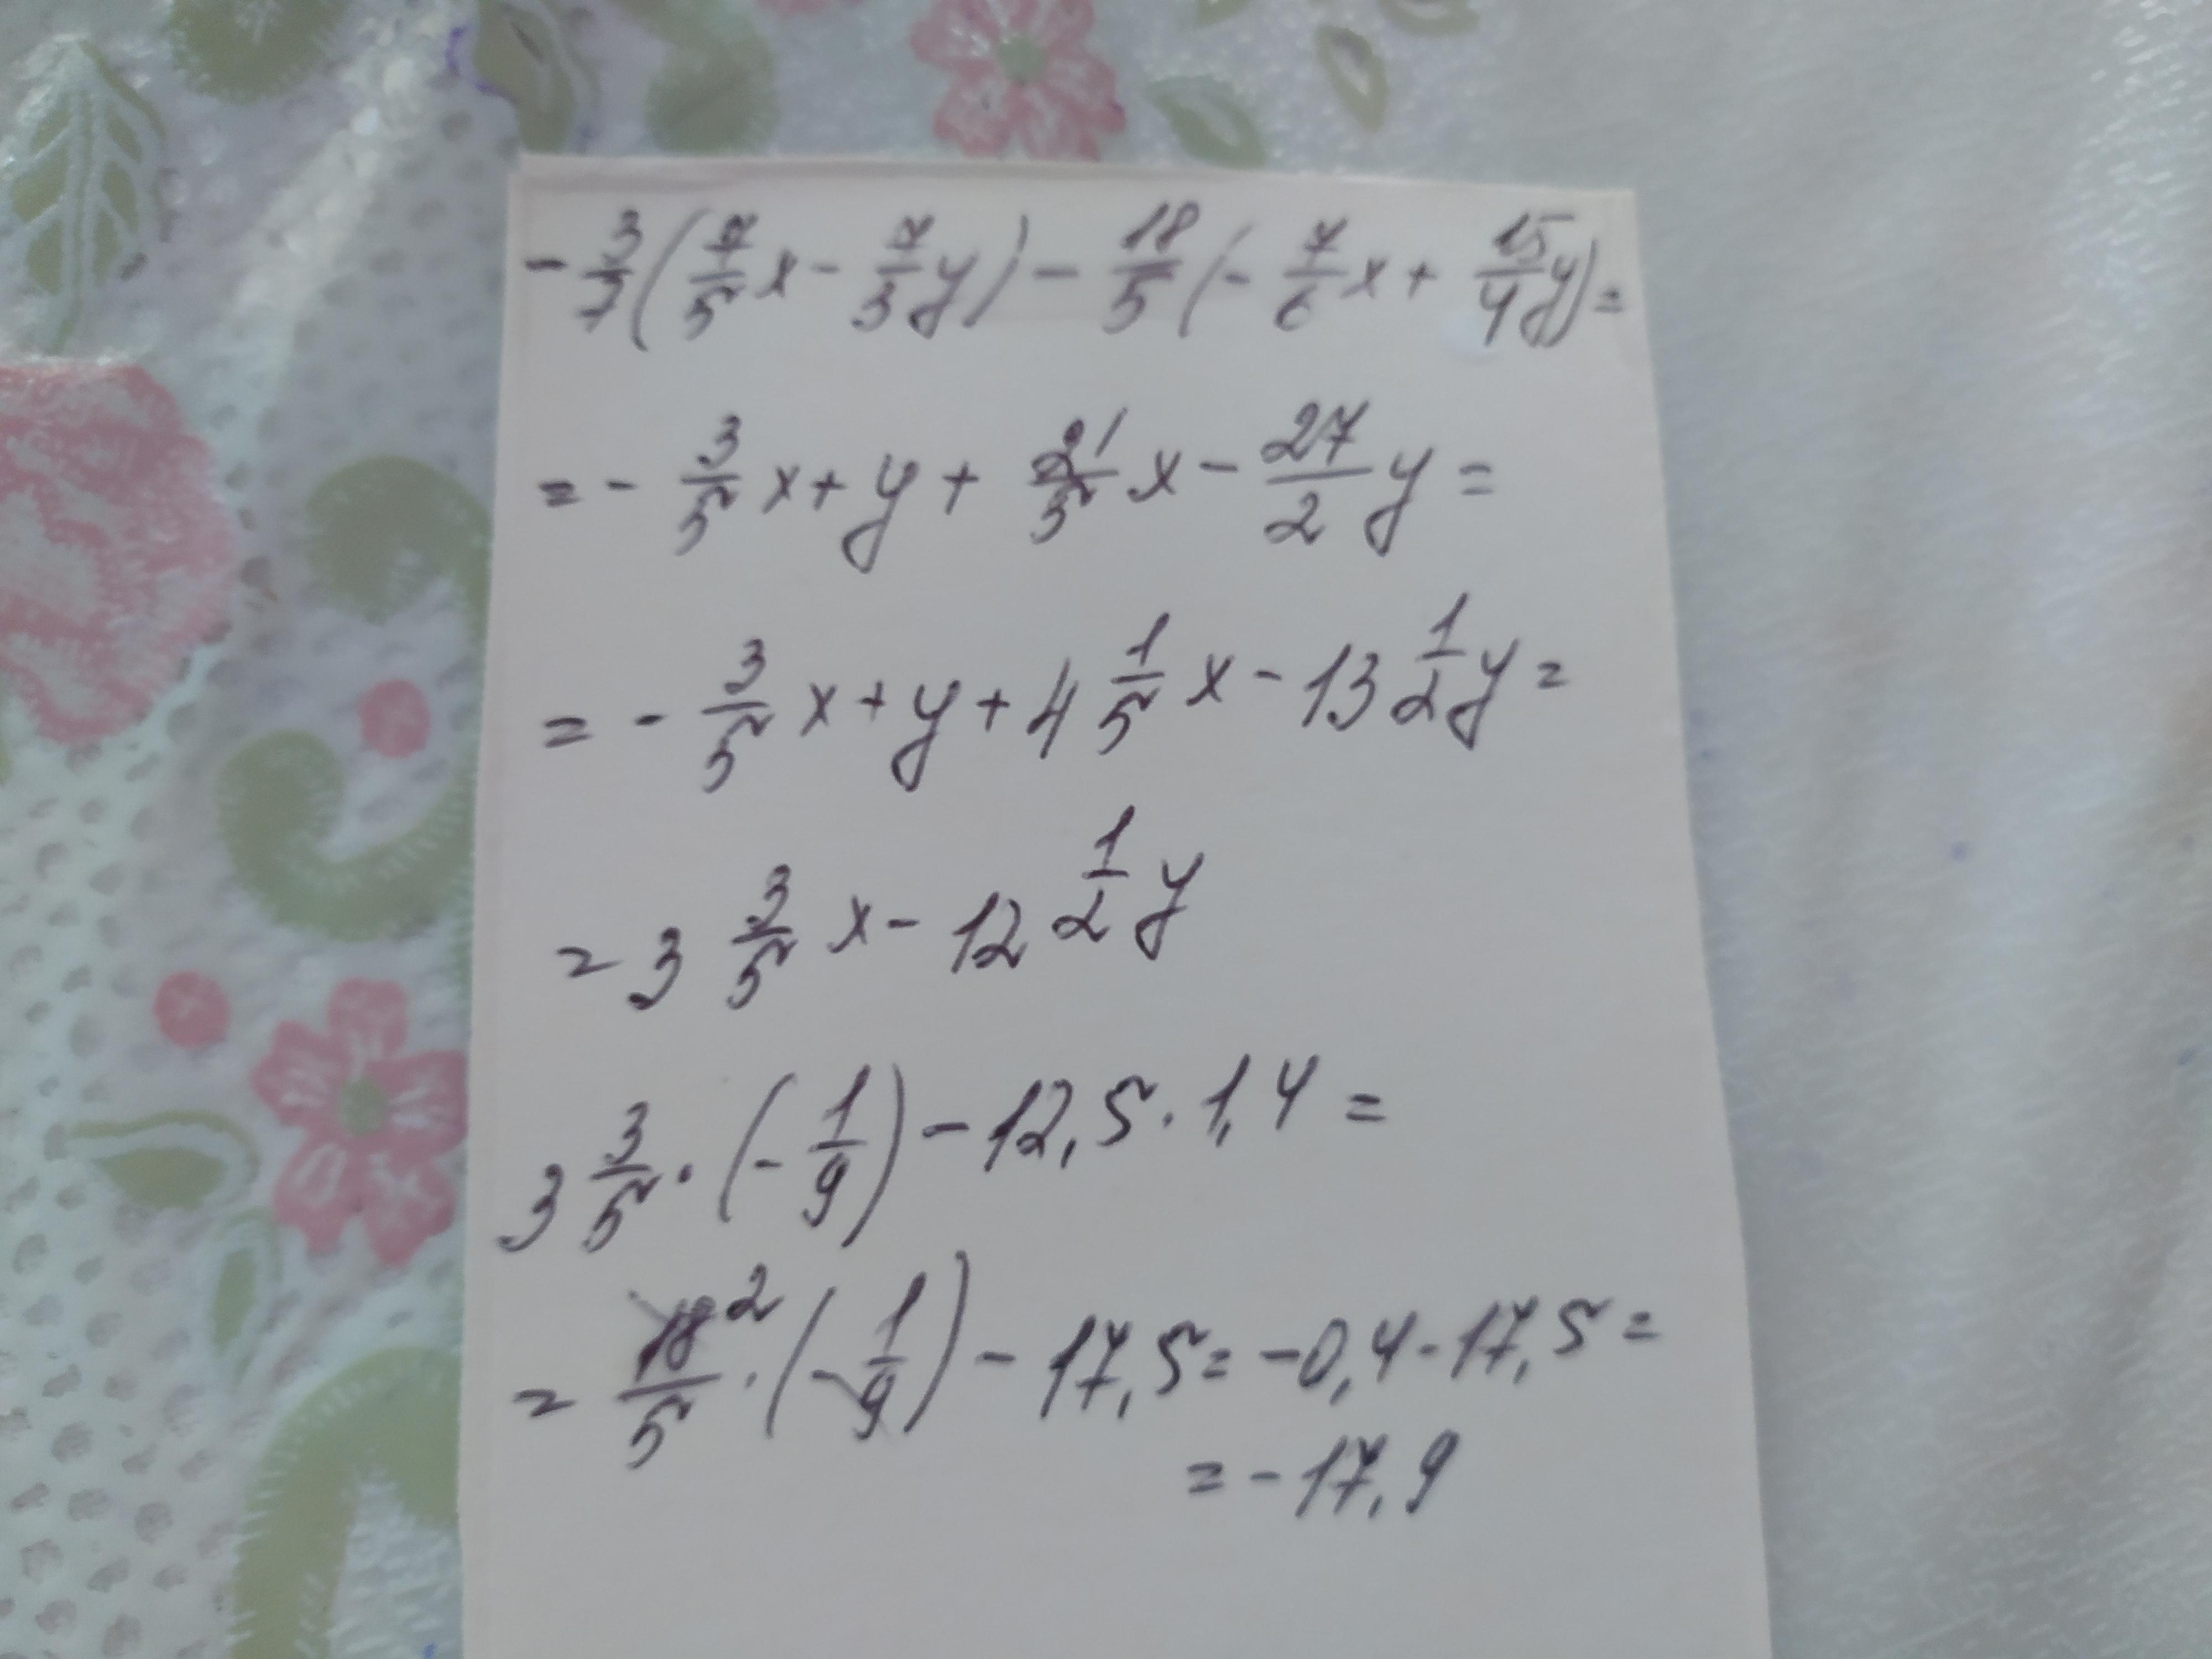 -3/7(7/5x - 7/3y) - 18/5(-7/6x + 15/4y) =
= - 3/5x + y + 21/5x - 27/2y =
= - 3/5x + y + 4 1/5x - 13 1/2y =
= 3 3/5x - 12 1/2y
3 3/5 · (-1/9) - 12,5 · 1,4 =
= 18²/5 · (-1/9) - 17,5 = -0,4 - 17,5 =
= -17,9